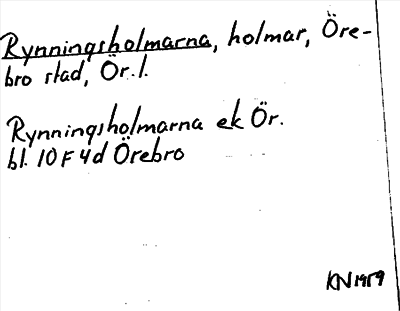 Rynningsholmarna, holmar, Öre-
bro stad, Ör. l.
Rynningsholmarna ek Ör.
bl. 10 F 4d Örebro
KN 1959